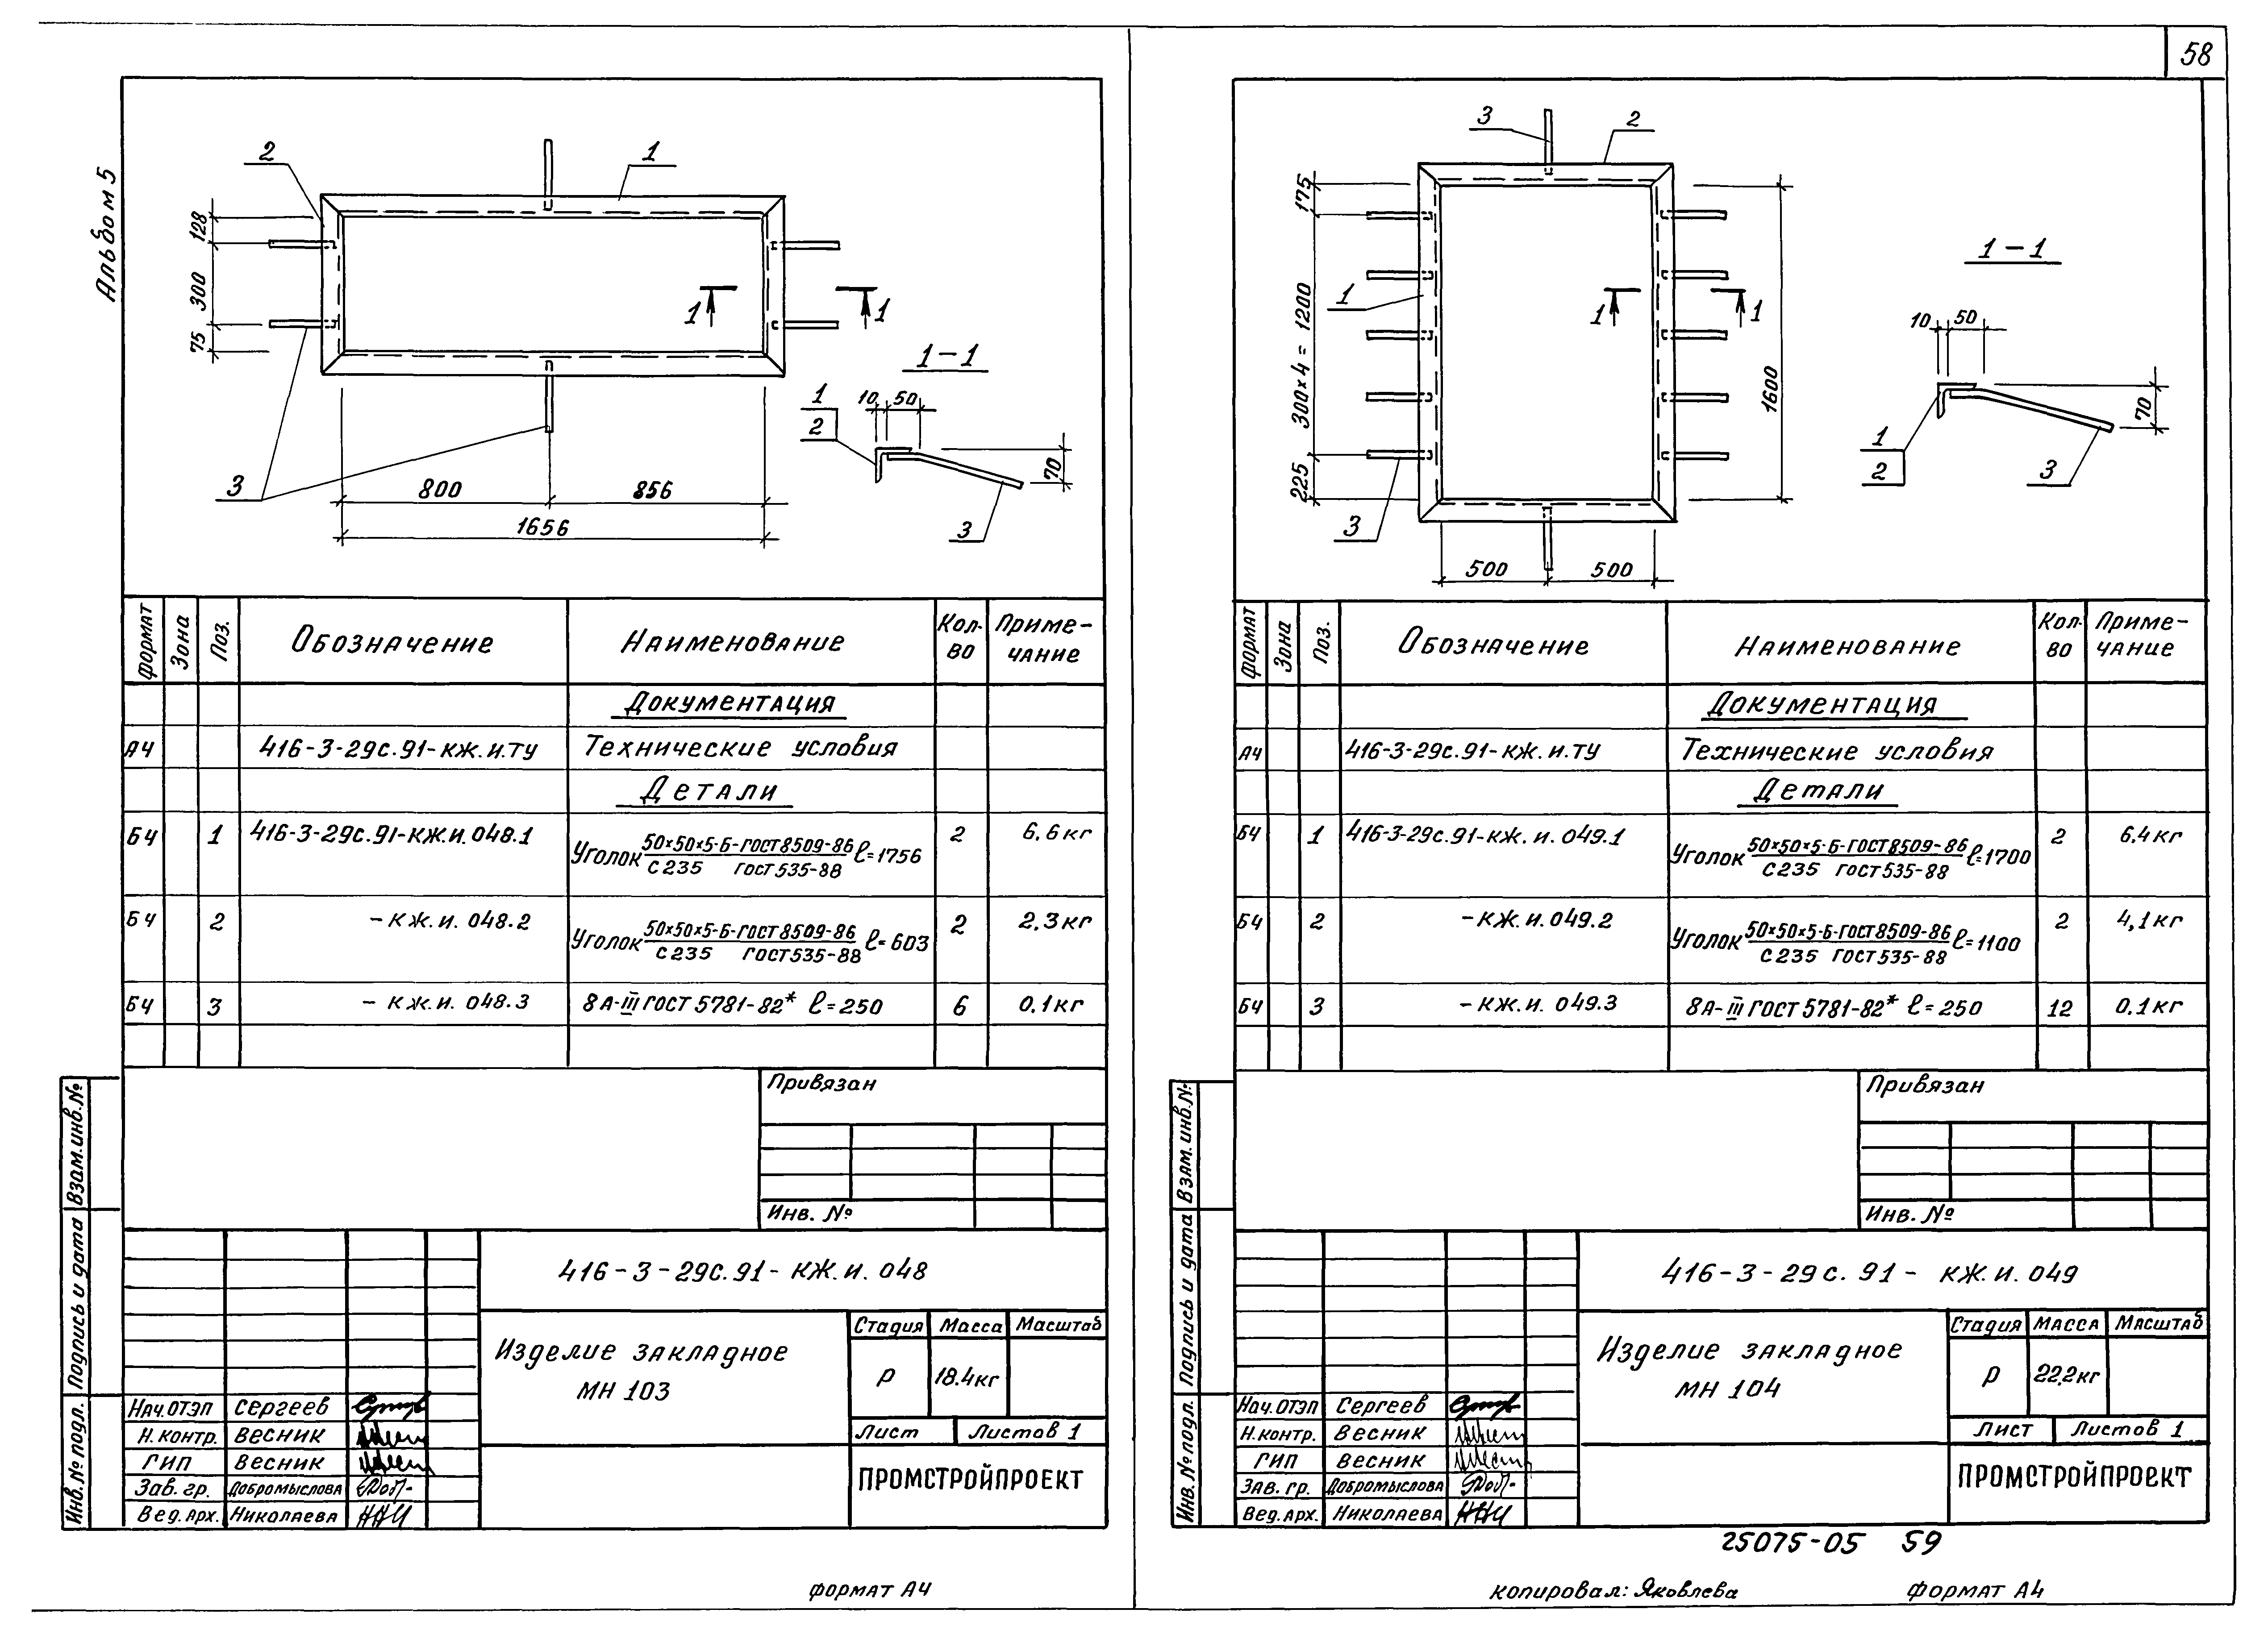 58
Альбом 5
2
1
128
300
75
1
1
1-1
1
2
10
50
70
3
3
800
856
1656
Формат
Зона
Поз.
Обозначение
Наименование
Кол-во
Приме-чание
Документация
А4 416-3-29с.91-КЖ.И.ТУ Технические условия
Детали
Б4 1 416-3-29с.91-КЖ.И.048.1 Уголок 50×50×5-Б-ГОСТ 8509-86 / С235 ГОСТ 535-88 ℓ=1756 2 6.6 кг
Б4 2 -КЖ.И.048.2 Уголок 50×50×5-Б-ГОСТ 8509-86 / С235 ГОСТ 535-88 ℓ=603 2 2.3 кг
Б4 3 -КЖ.И.048.3 8А-III ГОСТ 5781-82* ℓ=250 6 0.1 кг
Привязан
Инв. №
Взам. инв. №
Подпись и дата
Инв. № подл.
416-3-29с.91-КЖ.И.048
Изделие закладное
МН 103
Стадия Масса Масштаб
Р 18.4кг
Лист Листов 1
ПРОМСТРОЙПРОЕКТ
Нач. ОТЭП Сергеев
Н. контр. Весник
ГИП Весник
Зав. гр. Добромыслова
Вед. арх. Николаева
формат А4
3
2
175
300×4=1200
225
1
1
1
1600
3
500
500
1-1
10
50
70
1
2
3
Формат
Зона
Поз.
Обозначение
Наименование
Кол-во
Приме-чание
Документация
А4 416-3-29с.91-КЖ.И.ТУ Технические условия
Детали
Б4 1 416-3-29с.91-КЖ.И.049.1 Уголок 50×50×5-Б-ГОСТ 8509-86 / С235 ГОСТ 535-88 ℓ=1700 2 6.4 кг
Б4 2 -КЖ.И.049.2 Уголок 50×50×5-Б-ГОСТ 8509-86 / С235 ГОСТ 535-88 ℓ=1100 2 4,1 кг
Б4 3 -КЖ.И.049.3 8А-III ГОСТ 5781-82* ℓ=250 12 0.1 кг
Привязан
Инв. №
Взам. инв. №
Подпись и дата
Инв. № подл.
416-3-29с.91-КЖ.И.049
Изделие закладное
МН 104
Стадия Масса Масштаб
Р 22.2кг
Лист Листов 1
ПРОМСТРОЙПРОЕКТ
Нач. ОТЭП Сергеев
Н. контр. Весник
ГИП Весник
Зав. гр. Добромыслова
Вед. арх. Николаева
25075-05 59
копировал: Яковлева
формат А4